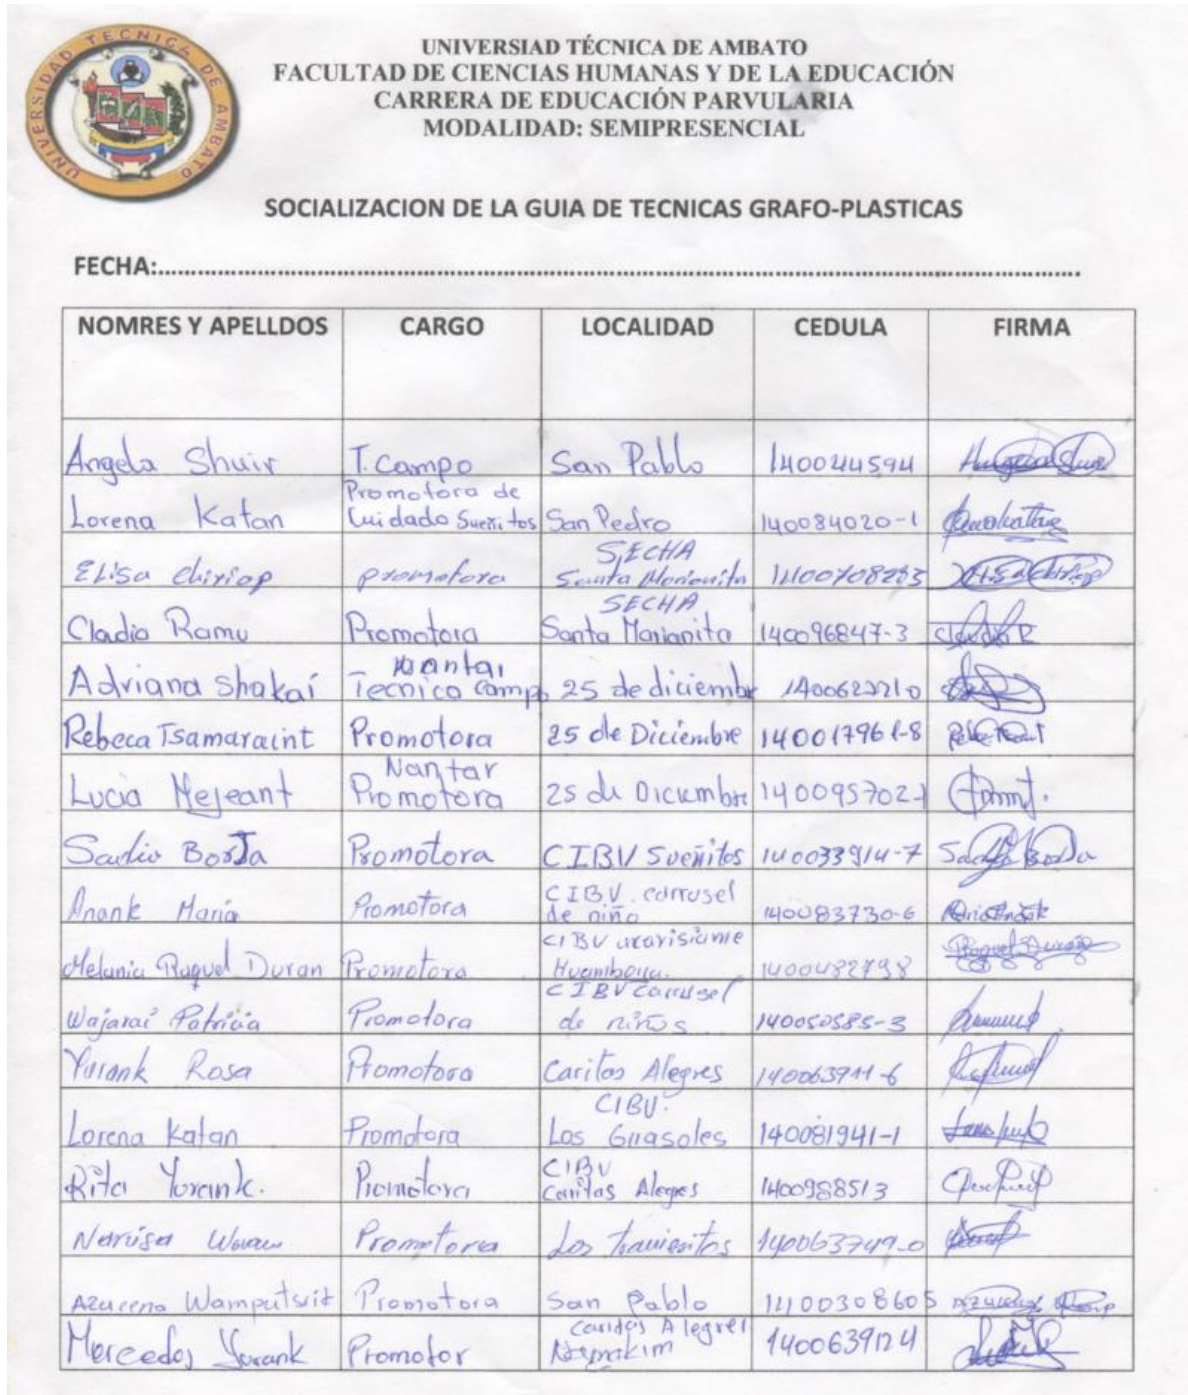 UNIVERSIDAD TECNICA DE AMBATO
UNIVERSIAD TÉCNICA DE AMBATO
FACULTAD DE CIENCIAS HUMANAS Y DE LA EDUCACIÓN
CARRERA DE EDUCACIÓN PARVULARIA
MODALIDAD: SEMIPRESENCIAL
SOCIALIZACION DE LA GUIA DE TECNICAS GRAFO-PLASTICAS
FECHA:
NOMRES Y APELLDOS CARGO LOCALIDAD CEDULA FIRMA
Angela Shuir T. Campo San Pablo 140044594
Lorena Katan Promotora de Cuidado Sueñitos San Pedro 140084020-1
Elisa Chiriap promotora SECHA Santa Marianita 1400708283
Cladio Ramu Promotora SECHA Santa Marianita 140096847-3 Claudia R
Adriana Shakaí Nantar Tecnica Campo 25 de diciembre
Rebeca Tsamaraint Promotora 25 de Diciembre 140017961-8
Lucia Mejeant Nantar Promotora 25 de Diciembre 140095702-1
Borja Promotora CIBV Sueñitos 140033914-7
Anank María Promotora C I B.V. carrusel de niño 140083730-6
Melania Raquel Duran Promotora CIBV Huamboya. 1400482798
Wajarai Patricia Promotora CIBV Carrusel de niños 140050585-3
Yurank Rosa Promotora Caritas Alegres 140063911-6
Lorena Katan Promotora CIBV. Los 140081941-1
Rita Yurank. Promotora CIBV Caritas Alegres 1400988513
Promotora Los traviesitos 140063749-0
Azucena Wamputsrit Promotora San Pablo 1400308605
Mercedes Yurank Promotor Caritas Alegres 1400639124